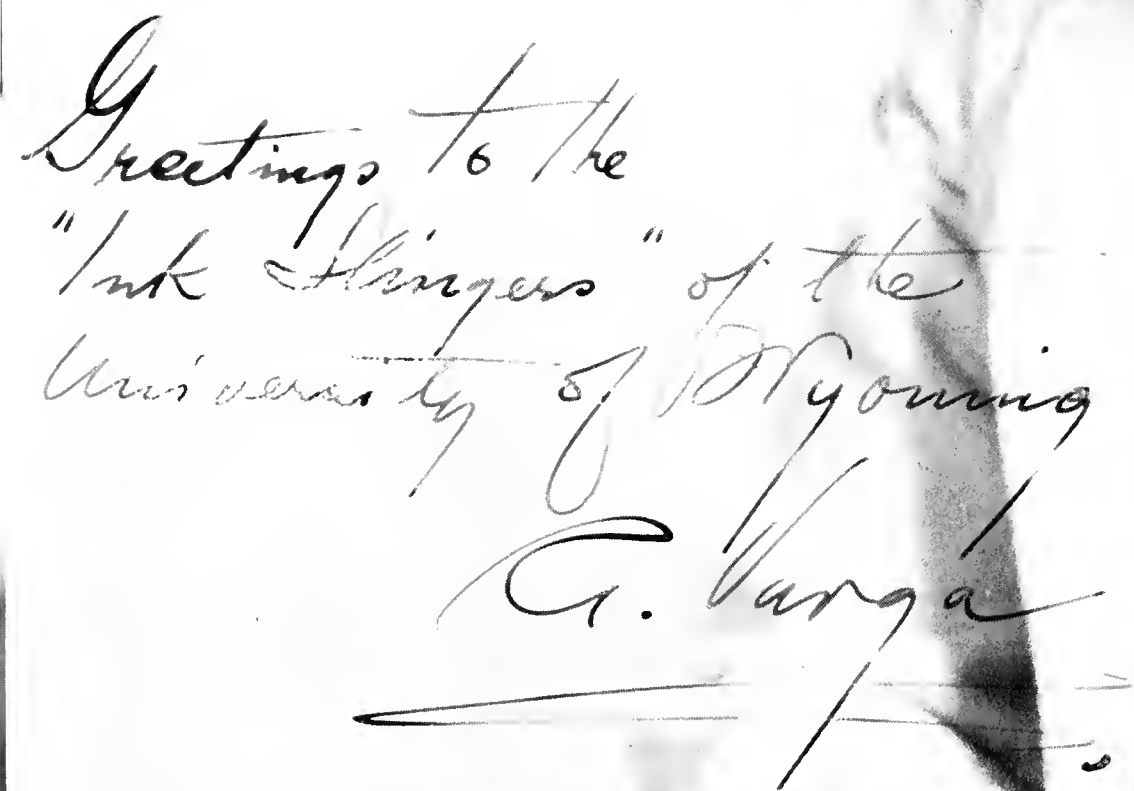 Greetings to the
"Ink Slingers" of the
University of Wyoming
A. Varga